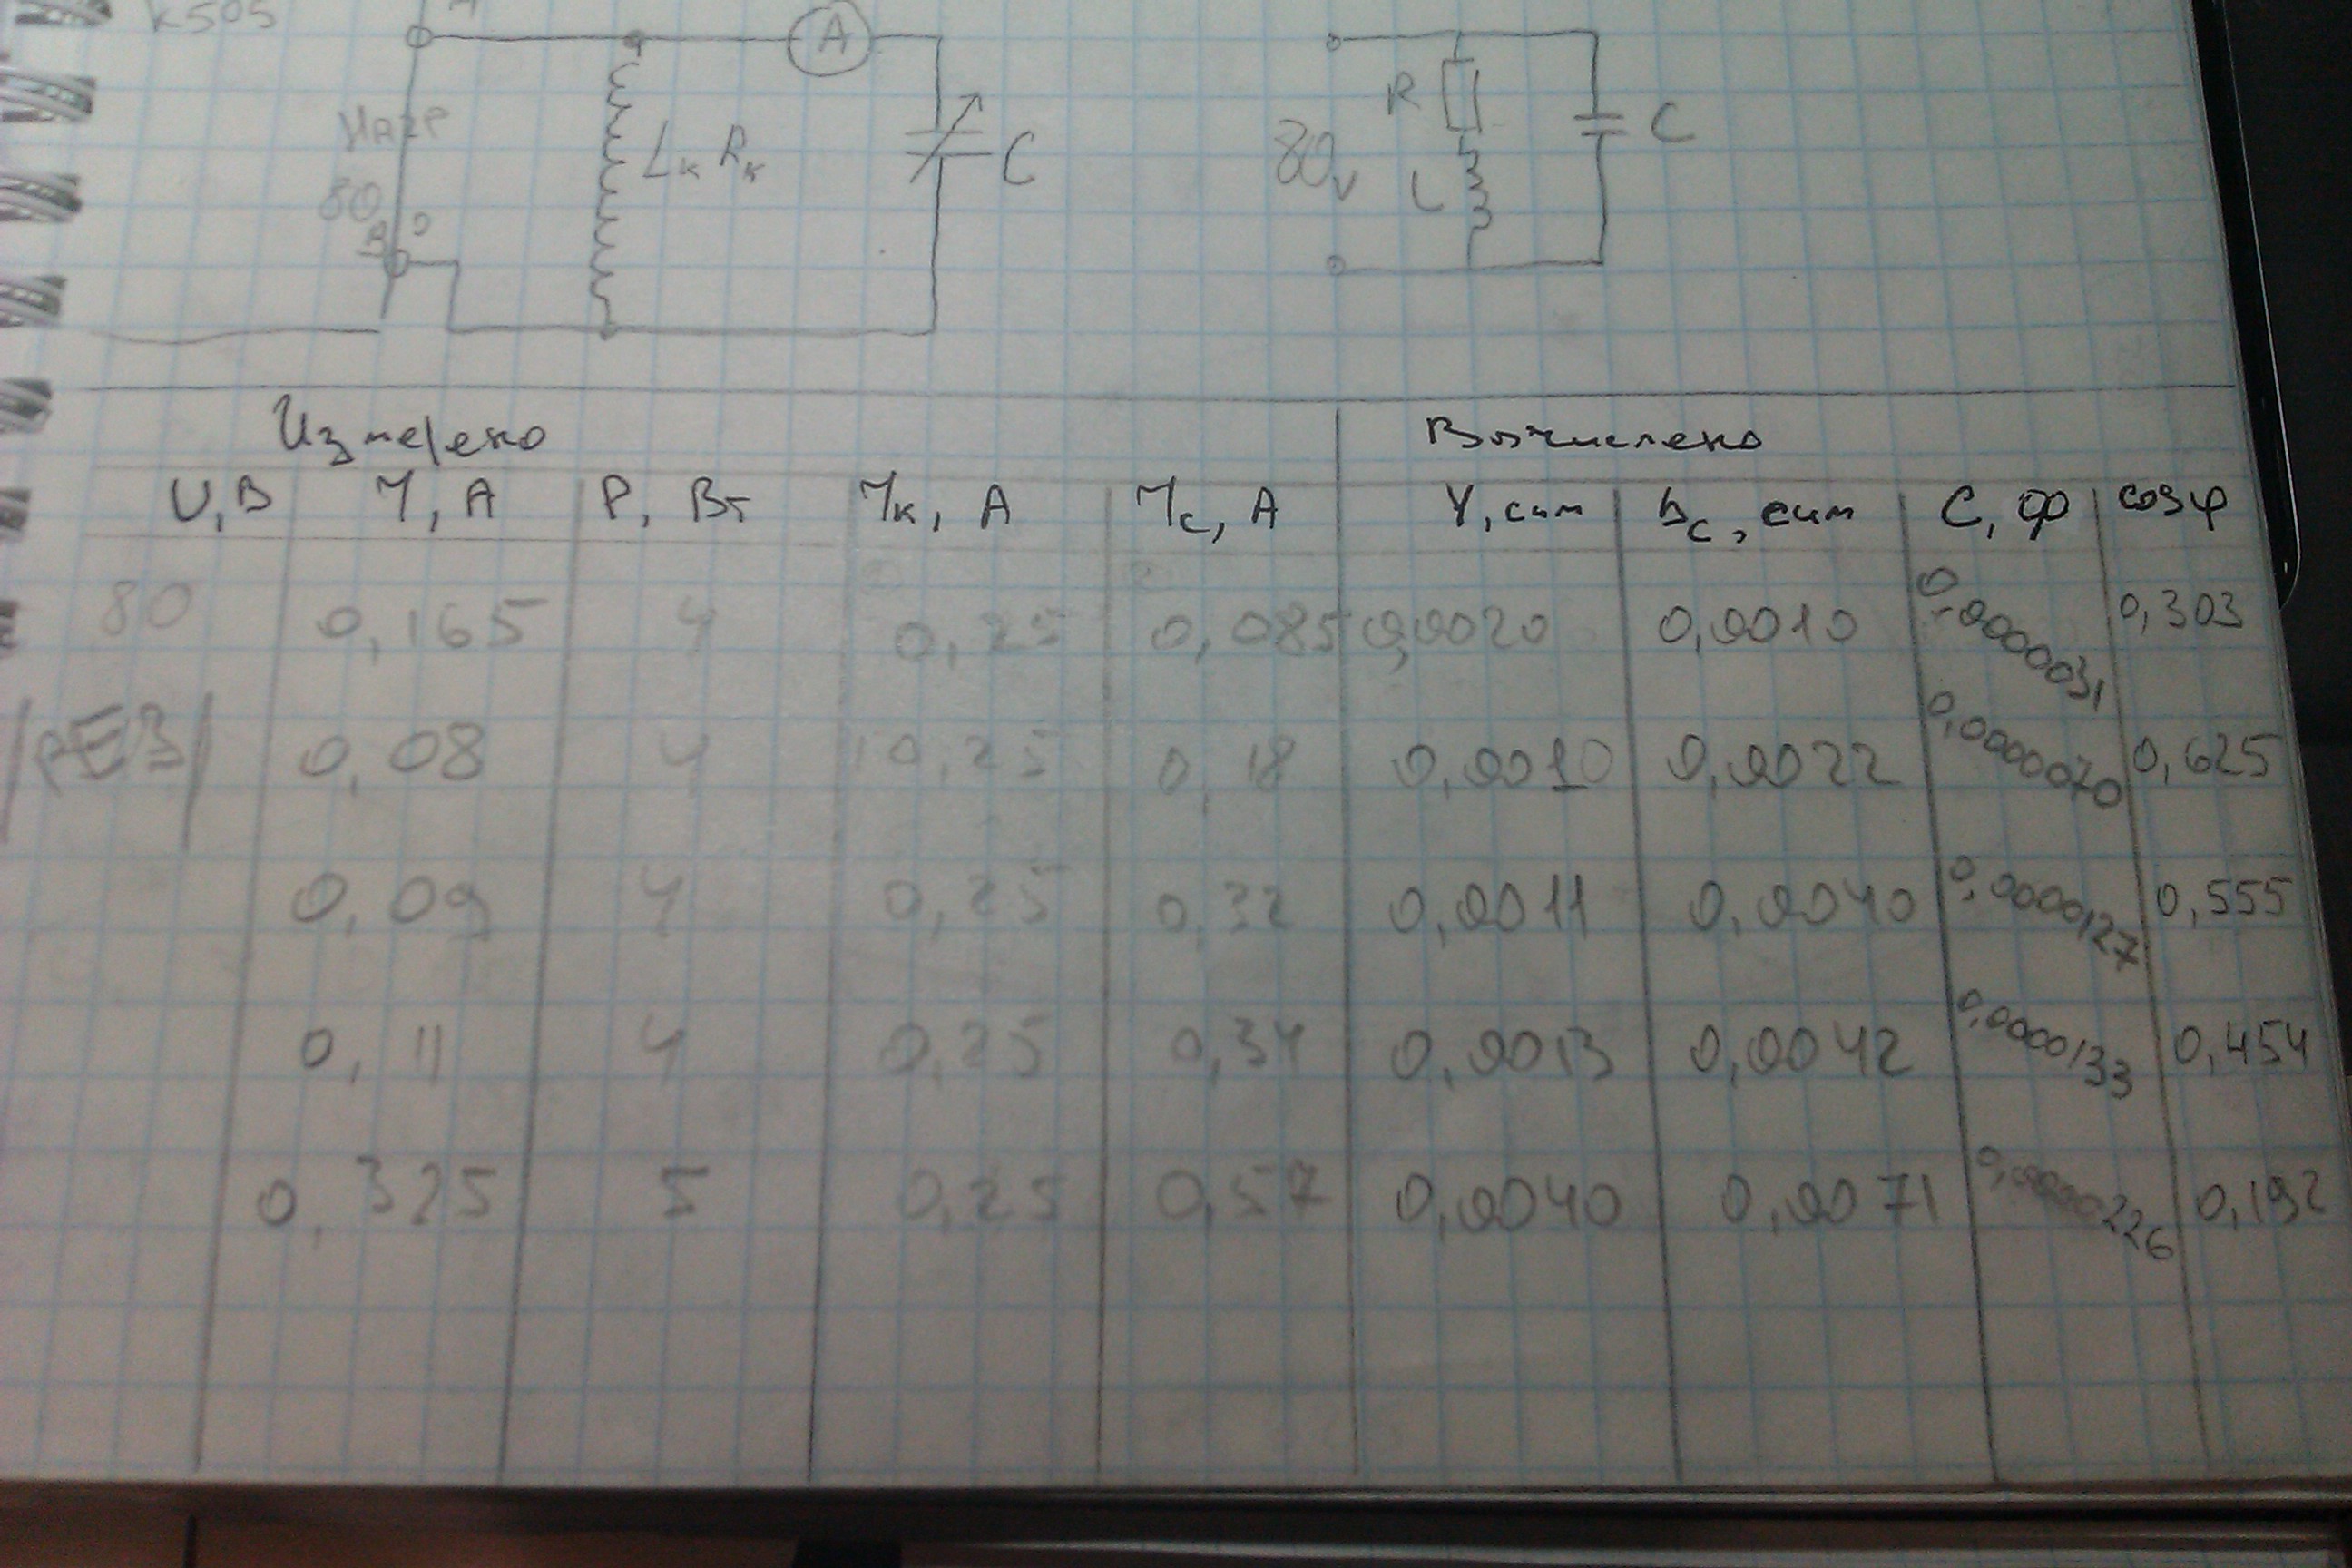 K505
A
A
R
C
НАГР
Lк Rк
C
80v
L
80
B
Измерено
Вычислено
U, В I, А P, Вт Iк, А Ic, А Y, сим bc, сим C, Ф cosφ
80 0,165 4 0,25 0,085 0,0020 0,0010 0,0000031 0,303
|РЕЗ| 0,08 4 0,25 0,18 0,0010 0,0022 0,0000070 0,625
0,09 4 0,25 0,32 0,0011 0,0040 0,0000127 0,555
0,11 4 0,25 0,34 0,0013 0,0042 0,0000133 0,454
0,325 5 0,25 0,57 0,0040 0,0071 0,0000226 0,192